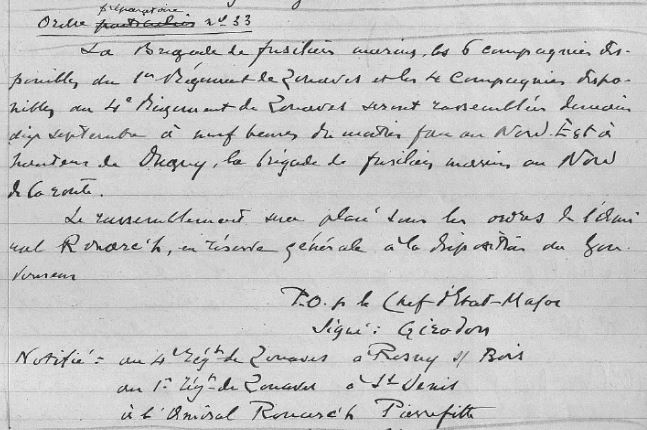 préparatoire
Ordre particulier n° 33
La Brigade de fusiliers marins, les 6 compagnies dis-
ponibles du 1er Régiment de Zouaves et les 4 Compagnies dispo-
nibles du 4e Régiment de Zouaves seront rassemblées demain
dix septembre à neuf heures du matin face au Nord-Est à
hauteur de Dugny, la brigade de fusiliers marins au Nord
de la route.
Le rassemblement sera placé sous les ordres de l'Ami-
ral Ronarc'h, en réserve générale à la disposition du Gou-
verneur
P.O. p le Chef d'Etat-Major
Signé: Girodon
Notifié: au 4e Régt de Zouaves à Rosny s/ Bois
au 1er Régt de Zouaves à St Denis
à l'Amiral Ronarc'h Pierrefitte